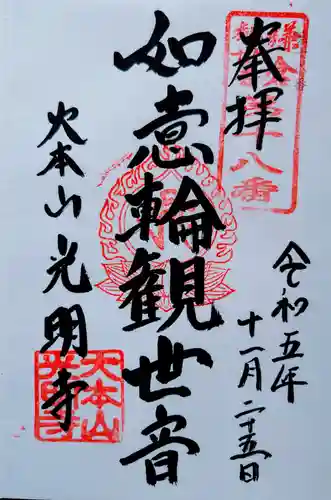 奉拝
鎌倉
十八番
如意輪観世音
大本山光明寺
大本山
光明寺
令和五年
十一月二十五日